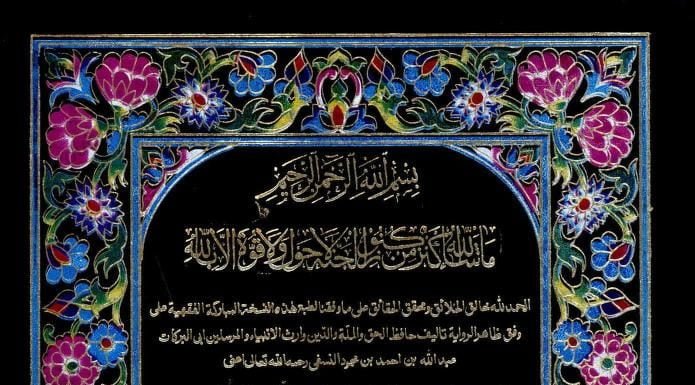 بسم الله الرحمن الرحيم
ما شاء الله كنز من كنوز الجنة لا حول ولا قوة إلا بالله
الحمد لله خالق الخلائق ومحقق الحقائق على ما وفقنا لطبعة لهذه النسخة المباركة الفقهية على
وفق ظاهر الرواية تأليف حافظ الحق والملة والدين وارث الانبياء والمرسلين ابى البركات
عبد الله بن احمد بن محمود النسفي رحمه الله تعالى اعنى